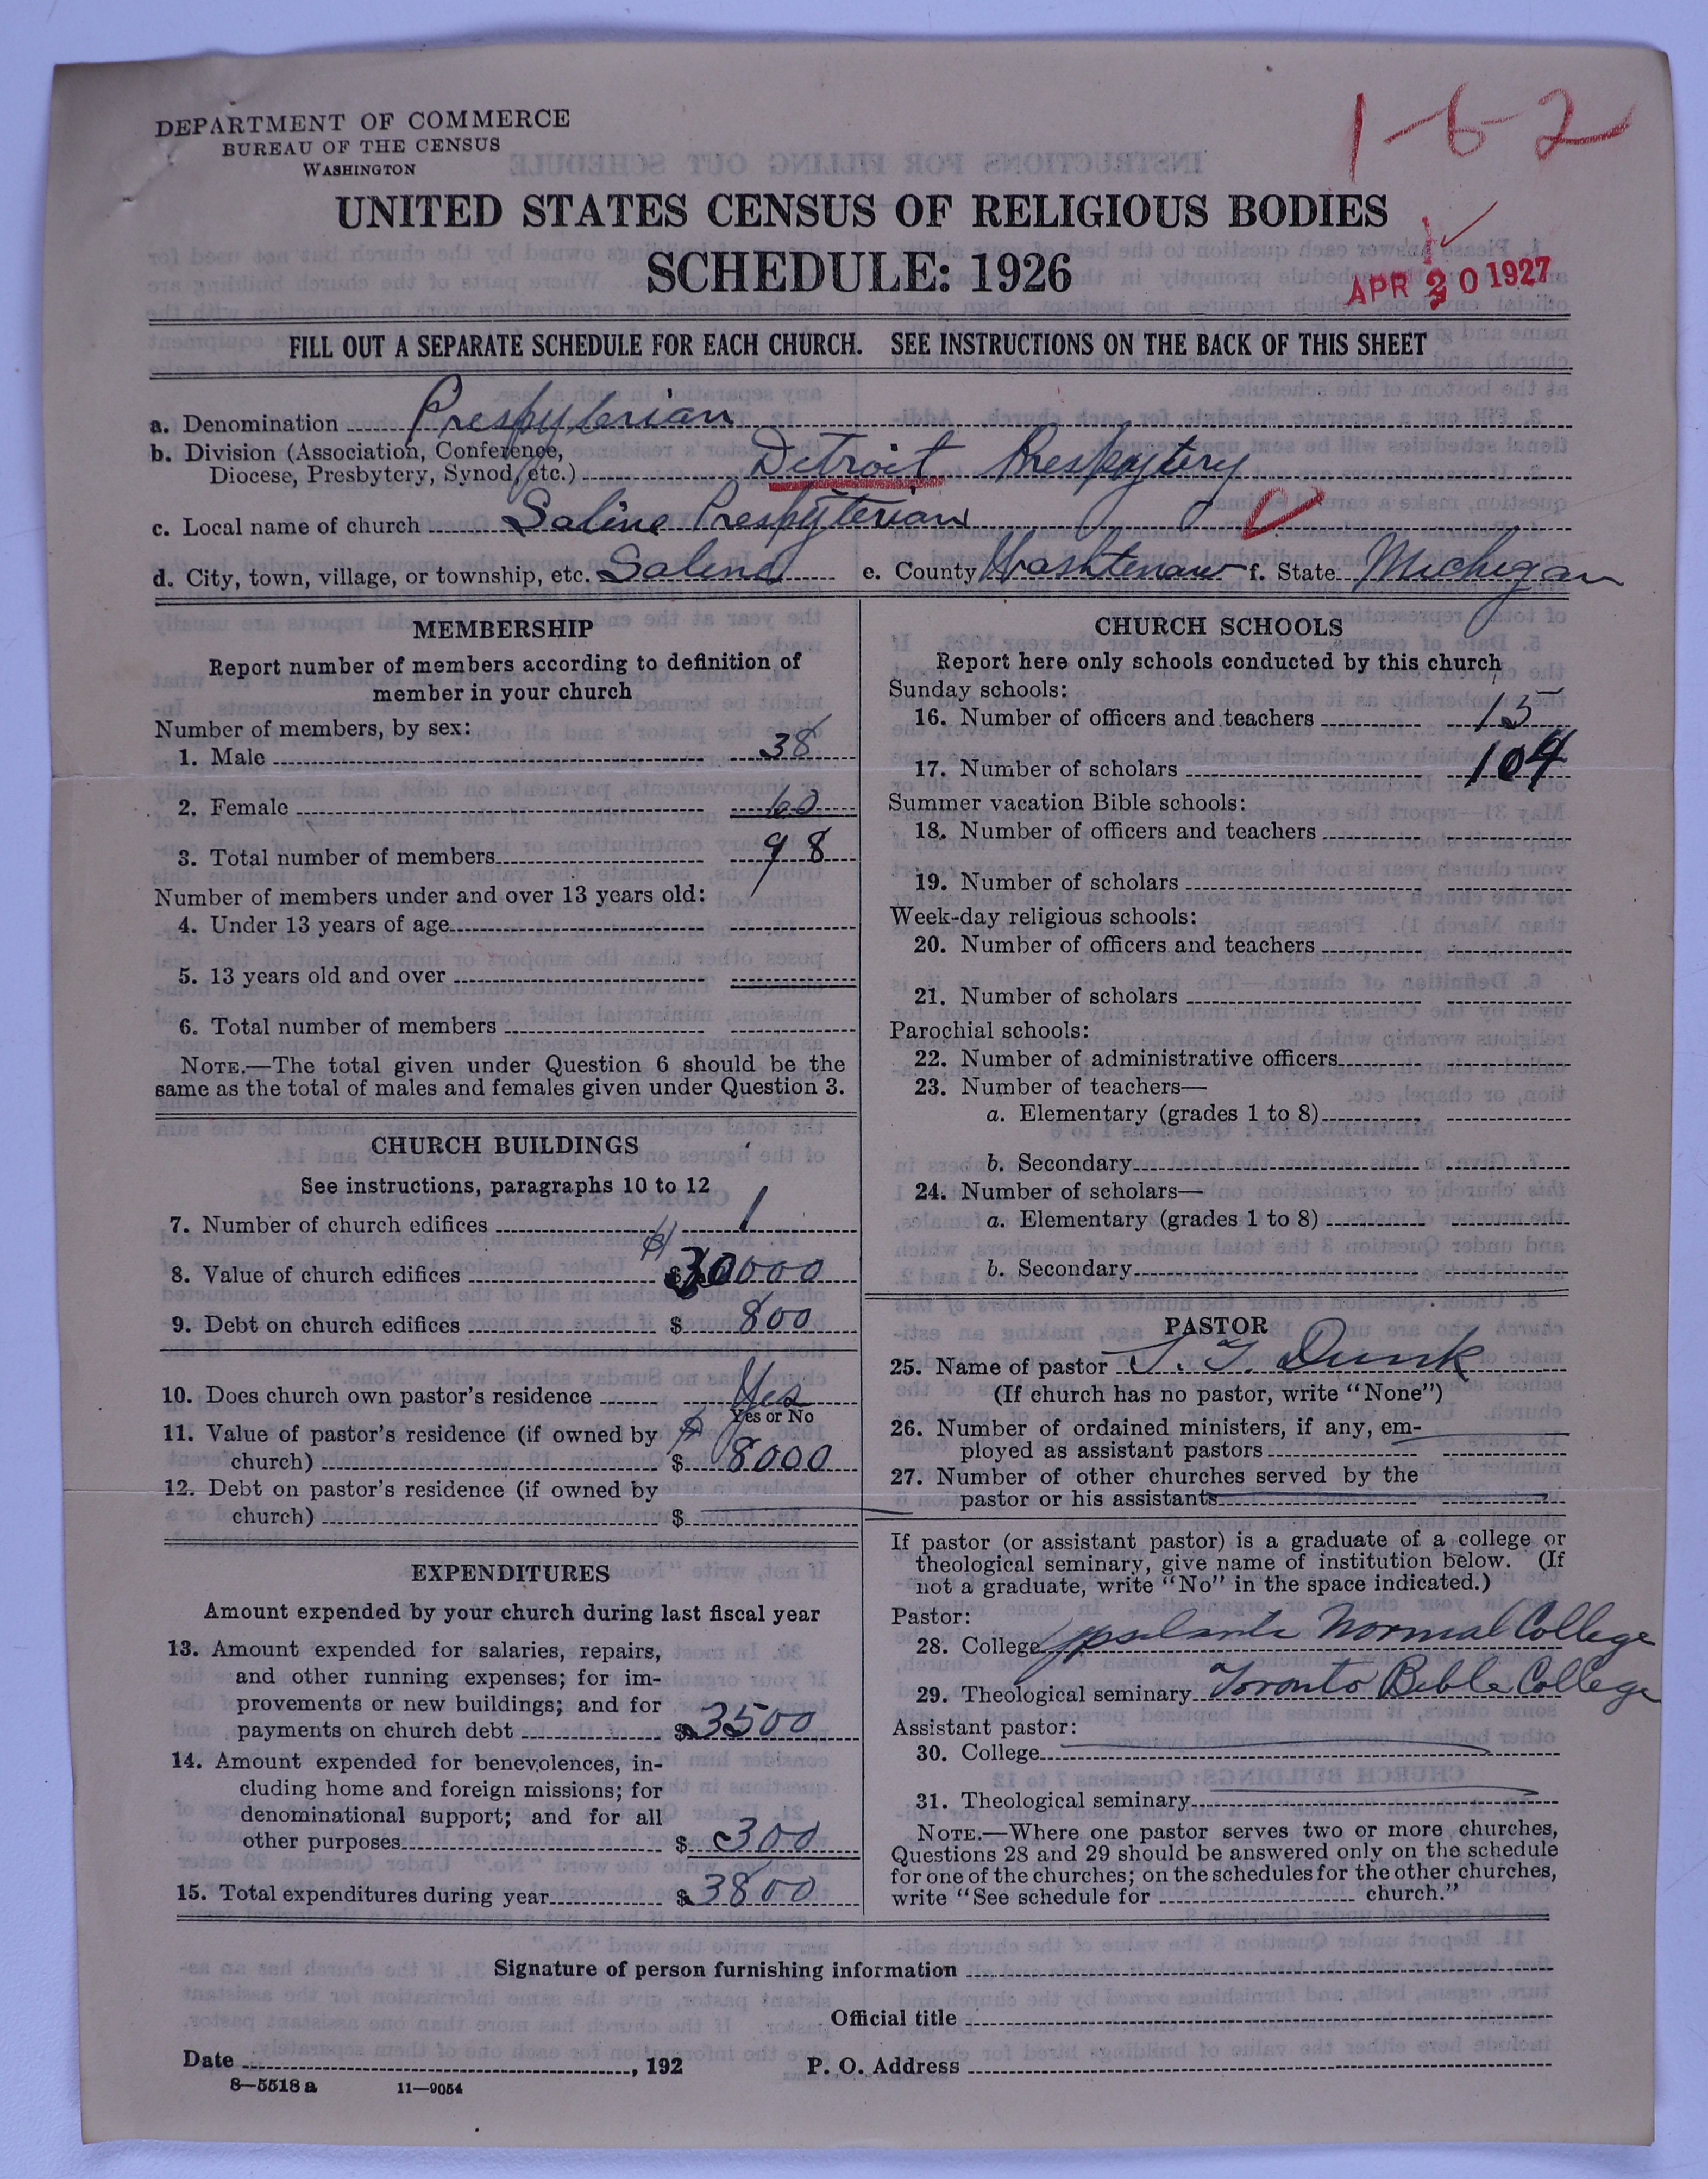 1-6-2
DEPARTMENT OF COMMERCE
BUREAU OF THE CENSUS
WASHINGTON
UNITED STATES CENSUS OF RELIGIOUS BODIES
SCHEDULE: 1926
APR 20 1927
FILL OUT A SEPARATE SCHEDULE FOR EACH CHURCH. SEE INSTRUCTIONS ON THE BACK OF THIS SHEET
a. Denomination Presbyterian
b. Division (Association, Conference,
Diocese, Presbytery, Synod, etc.) Detroit Presbytery
c. Local name of church Saline Presbyterian
d. City, town, village, or township, etc. Saline e. County Washtenaw f. State Michigan
MEMBERSHIP
Report number of members according to definition of
member in your church
Number of members, by sex:
1. Male 38
2. Female 60
3. Total number of members 98
Number of members under and over 13 years old:
4. Under 13 years of age
5. 13 years old and over
6. Total number of members
NOTE.—The total given under Question 6 should be the
same as the total of males and females given under Question 3.
CHURCH BUILDINGS
See instructions, paragraphs 10 to 12
7. Number of church edifices 1
8. Value of church edifices $ 30000
9. Debt on church edifices $ 800
10. Does church own pastor's residence Yes
Yes or No
11. Value of pastor's residence (if owned by
church) $ 8000
12. Debt on pastor's residence (if owned by
church) $
EXPENDITURES
Amount expended by your church during last fiscal year
13. Amount expended for salaries, repairs,
and other running expenses; for im-
provements or new buildings; and for
payments on church debt $ 3500
14. Amount expended for benevolences, in-
cluding home and foreign missions; for
denominational support; and for all
other purposes $ 300
15. Total expenditures during year $ 3800
CHURCH SCHOOLS
Report here only schools conducted by this church
Sunday schools:
16. Number of officers and teachers 15
17. Number of scholars 104
Summer vacation Bible schools:
18. Number of officers and teachers
19. Number of scholars
Week-day religious schools:
20. Number of officers and teachers
21. Number of scholars
Parochial schools:
22. Number of administrative officers
23. Number of teachers—
a. Elementary (grades 1 to 8)
b. Secondary
24. Number of scholars—
a. Elementary (grades 1 to 8)
b. Secondary
PASTOR
25. Name of pastor Dunk
(If church has no pastor, write "None")
26. Number of ordained ministers, if any, em-
ployed as assistant pastors
27. Number of other churches served by the
pastor or his assistants
If pastor (or assistant pastor) is a graduate of a college or
theological seminary, give name of institution below. (If
not a graduate, write "No" in the space indicated.)
Pastor:
28. College Ypsilanti Normal College
29. Theological seminary Toronto Bible College
Assistant pastor:
30. College
31. Theological seminary
NOTE.—Where one pastor serves two or more churches,
Questions 28 and 29 should be answered only on the schedule
for one of the churches; on the schedules for the other churches,
write "See schedule for church."
Signature of person furnishing information
Official title
Date , 192 P. O. Address
8—5518 a 11—9054